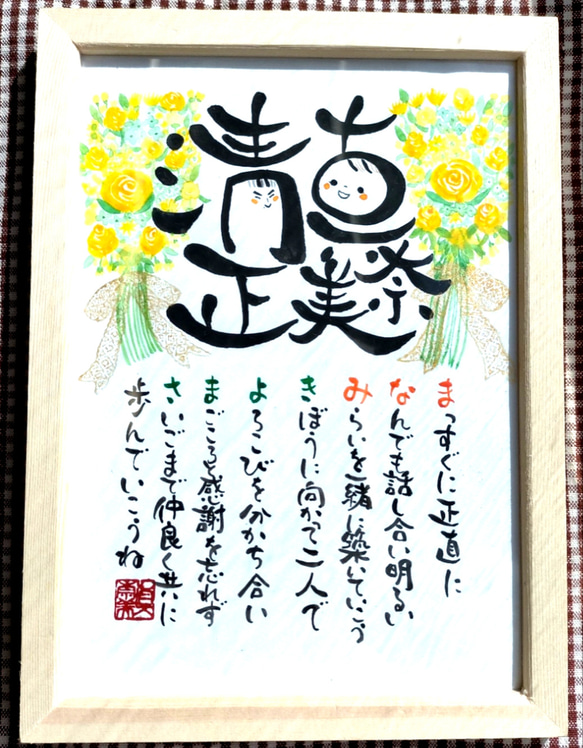 真奈美
清正
まっすぐに正直に
なんでも話し合い明るい
みらいを一緒に築いていこう
きぼうに向かって二人で
よろこびを分かち合い
まごころと感謝を忘れず
さいごまで仲良く共に
歩んでいこうね